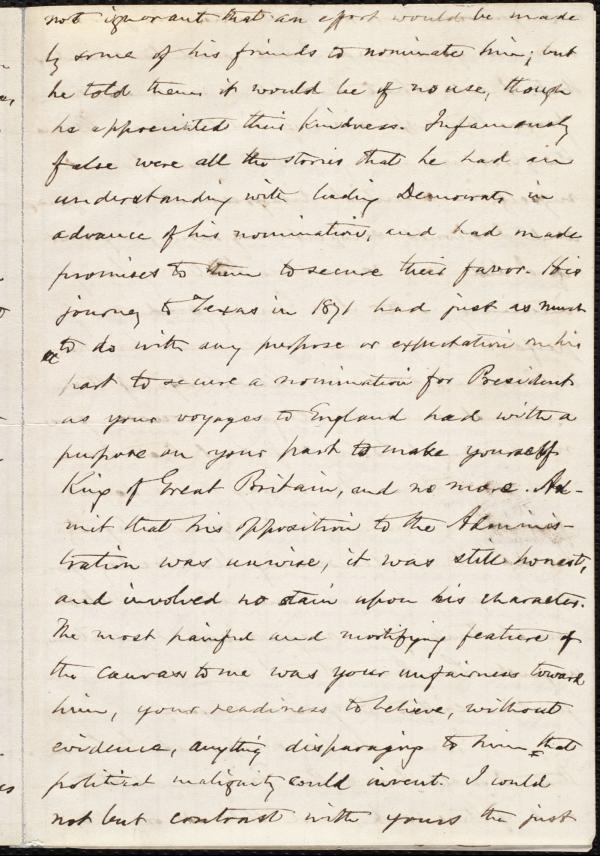 not ignorant that an effort would be made
by some of his friends to nominate him; but
he told them it would be of no use, though
he appreciated their kindness. Infamously
false were all the stories that he had an
understanding with leading Democrats in
advance of his nomination, and had made
promises to them to secure their favor. His
journey to Texas in 1871 had just as much
to do with any purpose or expectation on his
part to secure a nomination for President
as your voyages to England had with a
purpose on your part to make yourself
King of Great Britain, and no more. Ad-
mit that his opposition to the Adminis-
tration was unwise, it was still honest,
and involved no stain upon his character.
The most painful and mortifying feature of
the canvass to me was your unfairness toward
him, your readiness to believe, without
evidence, anything disparaging to him that
political malignity could invent. I could
not but contrast with yours the just